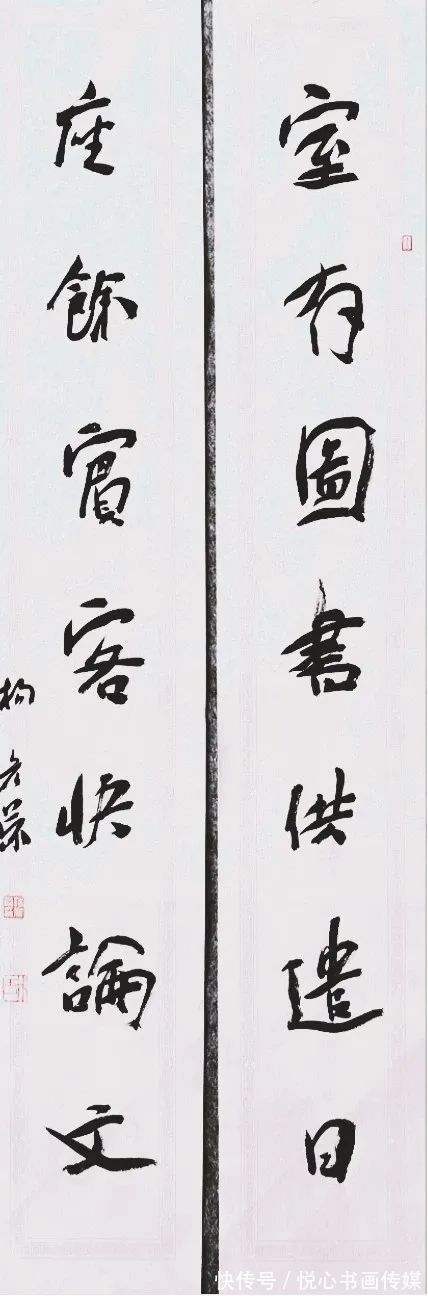 室有圖書供遣日
座餘賓客快論文
快传号 / 悦心书画传媒